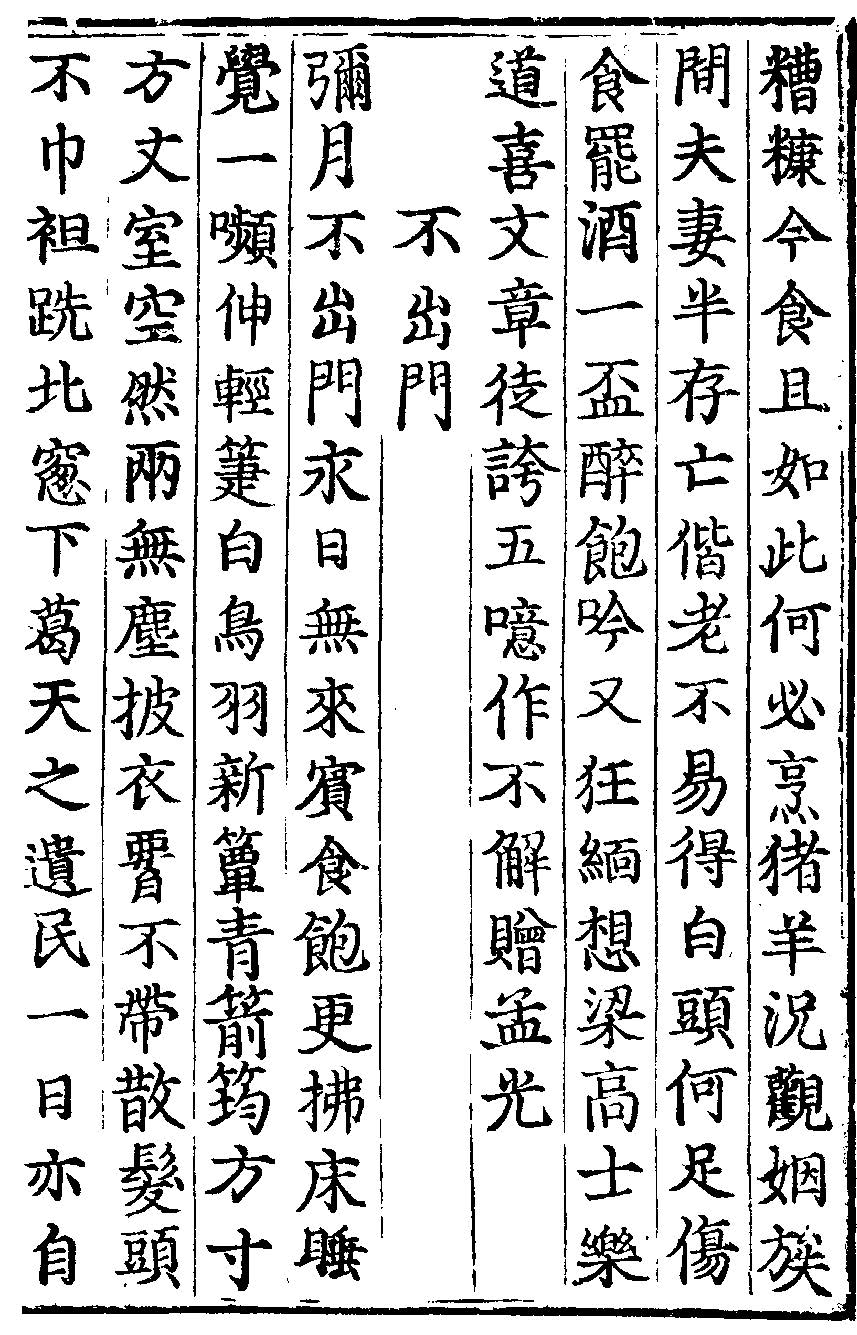 糟糠今食且如此何必烹猪羊況觀姻族
間夫妻半存亡偕老不易得白頭何足傷
食罷酒一盃醉飽吟又狂緬想梁高士樂
道喜文章徒誇五噫作不解贈孟光
不出門
彌月不出門永日無來賓食飽更拂床睡
覺一嚬伸輕箑白鳥羽新簟青箭筠方寸
方丈室空然兩無塵披衣𦝫不帶散髮頭
不巾袒跣北窓下葛天之遺民一日亦自